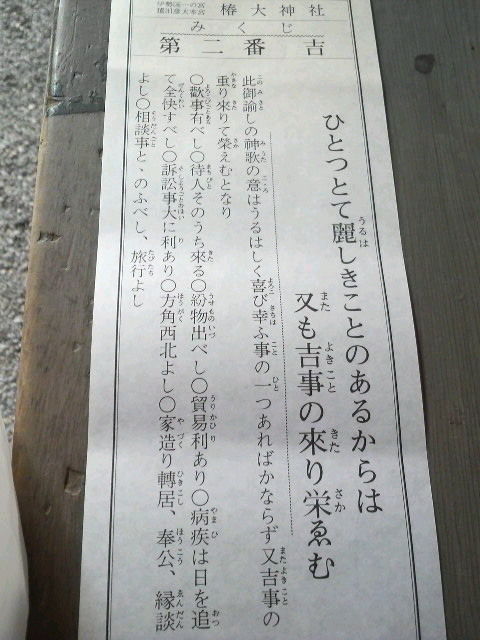 伊勢國一の宮
猿田彦大本宮
椿大神社
みくじ
第二番吉
ひとつとて麗しきことのあるからは
又も吉事の來り栄ゑむ
此御諭しの神歌の意はうるはしく喜び幸ふ事の一つあればかならず又吉事の
重り來りて榮えむとなり
〇歡事有べし〇待人そのうち來る〇紛物出べし〇貿易利あり〇病疾は日を追
て全快すべし〇訴訟事大に利あり〇方角西北よし〇家造り轉居、奉公、縁談
よし〇相談事とゝのふべし、旅行よし